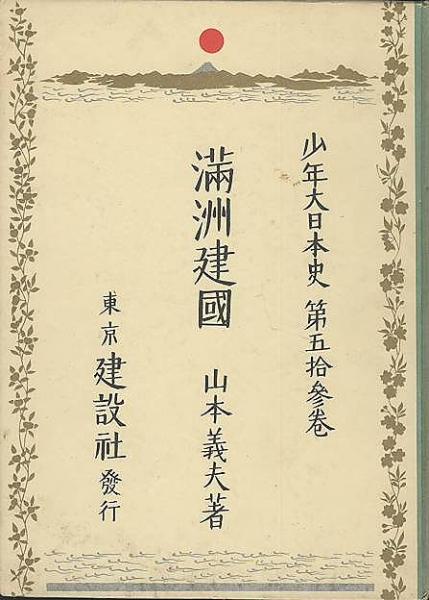 少年大日本史 第五拾參卷
滿洲建國 山本義夫著
東京 建設社 發行